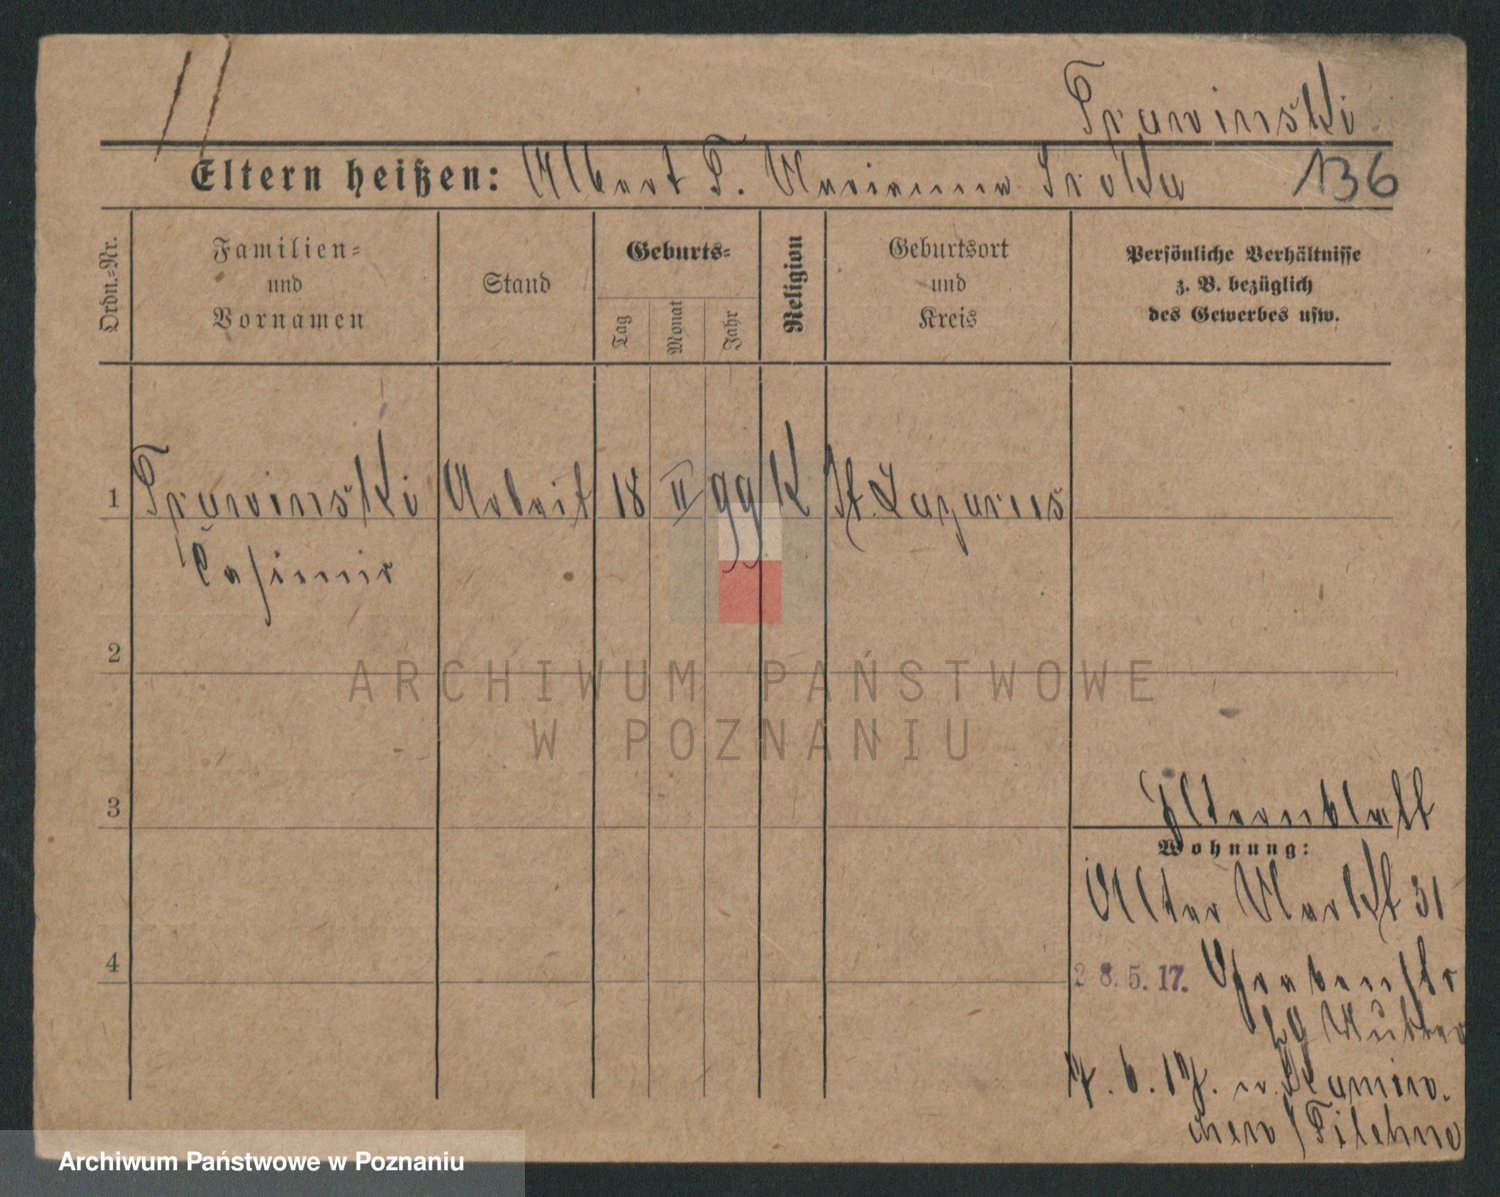 Prawinski
Eltern heißen: Albert P. Marianna Sroka 136
Ordn.-Nr.
Familien-
und
Vornamen
Stand
Geburts-
Tag
Monat
Jahr
Religion
Geburtsort
und
Kreis
Persönliche Verhältnisse
z. B. bezüglich
des Gewerbes usw.
1 Prawinski Arbeit 18 II 99 K St. Lazarus
Casimir
2
ARCHIWUM PAŃSTWOWE
W POZNANIU
3
Elternblatt
Wohnung:
Alter Markt 31
4
28.5.17. Grabenstr
29 Mutter
7.6.17. n.
/Filehne
Archiwum Państwowe w Poznaniu